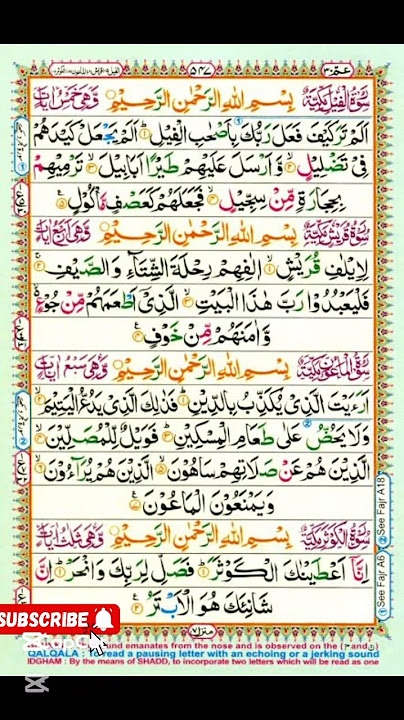 عم ٣٠ ٥٤٧
سُوْرَةُ الْفِيْلِ مَكِّيَّةٌ بِسْمِ اللّٰهِ الرَّحْمٰنِ الرَّحِيْمِ وَّهِيَ خَمْسُ اٰيَاتٍ
اَلَمْ تَرَ كَيْفَ فَعَلَ رَبُّكَ بِاَصْحٰبِ الْفِيْلِ ۱ اَلَمْ يَجْعَلْ كَيْدَهُمْ
فِيْ تَضْلِيْلٍ ۲ وَّ اَرْسَلَ عَلَيْهِمْ طَيْرًا اَبَابِيْلَ ۳ تَرْمِيْهِمْ
بِحِجَارَةٍ مِّنْ سِجِّيْلٍ ۴ فَجَعَلَهُمْ كَعَصْفٍ مَّاْكُوْلٍ ۵
سُوْرَةُ قُرَيْشٍ مَكِّيَّةٌ بِسْمِ اللّٰهِ الرَّحْمٰنِ الرَّحِيْمِ وَّهِيَ اَرْبَعُ اٰيَاتٍ
لِاِيْلٰفِ قُرَيْشٍ ۱ اٖلٰفِهِمْ رِحْلَةَ الشِّتَآءِ وَ الصَّيْفِ ۲
فَلْيَعْبُدُوْا رَبَّ هٰذَا الْبَيْتِ ۳ الَّذِيْۤ اَطْعَمَهُمْ مِّنْ جُوْعٍ
وَّ اٰمَنَهُمْ مِّنْ خَوْفٍ ۴
سُوْرَةُ الْمَاعُوْنِ مَكِّيَّةٌ بِسْمِ اللّٰهِ الرَّحْمٰنِ الرَّحِيْمِ وَّهِيَ سَبْعُ اٰيَاتٍ
اَرَءَيْتَ الَّذِيْ يُكَذِّبُ بِالدِّيْنِ ۱ فَذٰلِكَ الَّذِيْ يَدُعُّ الْيَتِيْمَ ۲
وَ لَا يَحُضُّ عَلٰى طَعَامِ الْمِسْكِيْنِ ۳ فَوَيْلٌ لِّلْمُصَلِّيْنَ ۴
الَّذِيْنَ هُمْ عَنْ صَلَاتِهِمْ سَاهُوْنَ ۵ الَّذِيْنَ هُمْ يُرَآءُوْنَ ۶
وَ يَمْنَعُوْنَ الْمَاعُوْنَ ۷
سُوْرَةُ الْكَوْثَرِ مَكِّيَّةٌ بِسْمِ اللّٰهِ الرَّحْمٰنِ الرَّحِيْمِ وَّهِيَ ثَلٰثُ اٰيَاتٍ
اِنَّاۤ اَعْطَيْنٰكَ الْكَوْثَرَ ۱ فَصَلِّ لِرَبِّكَ وَ انْحَرْ ۲ اِنَّ
شَانِئَكَ هُوَ الْاَبْتَرُ ۳
منزل ٧
① See Fajr A6 ② See Fajr A18
SUBSCRIBE
und emanates from the nose and is observed on the
QALQALA : To read a pausing letter with an echoing or a jerking sound
IDGHAM : By the means of SHADD, to incorporate two letters which will be read as one